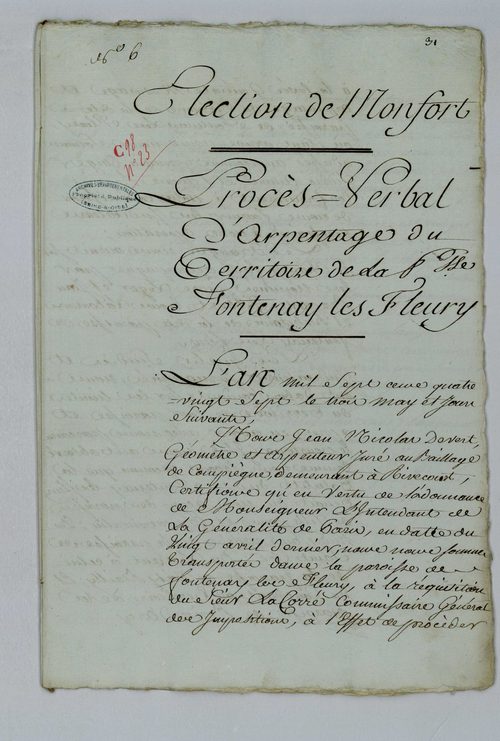 N.º 6
31
Election de Monfort
C98
n.º 23
ARCHIVES DÉPARTEMENTALES
Propriété Publique
SEINE-&-OISE
Procès=Verbal
D'Arpentage du
Territoire de La P.sse
Fontenay les Fleury
L'an mil Sept cens quatre
vingt Sept le trois may et Jours
Suivants,
Nous Jean Nicolas Devert,
Géometre et Arpenteur Juré au Baillage
de Compiègne, demeurant à Rivecourt,
Certifions qu'en Vertu de l'ordonnance
de Monseigneur L'Intendant de
La Généralité de Paris, en datte du
Vingt avril dernier, nous nous sommes
transportés dans la paroisse de
fontenay les Fleury, à la requisition
du Sieur La Corré Commissaire Général
des Impositions, à l'Effet de procèder